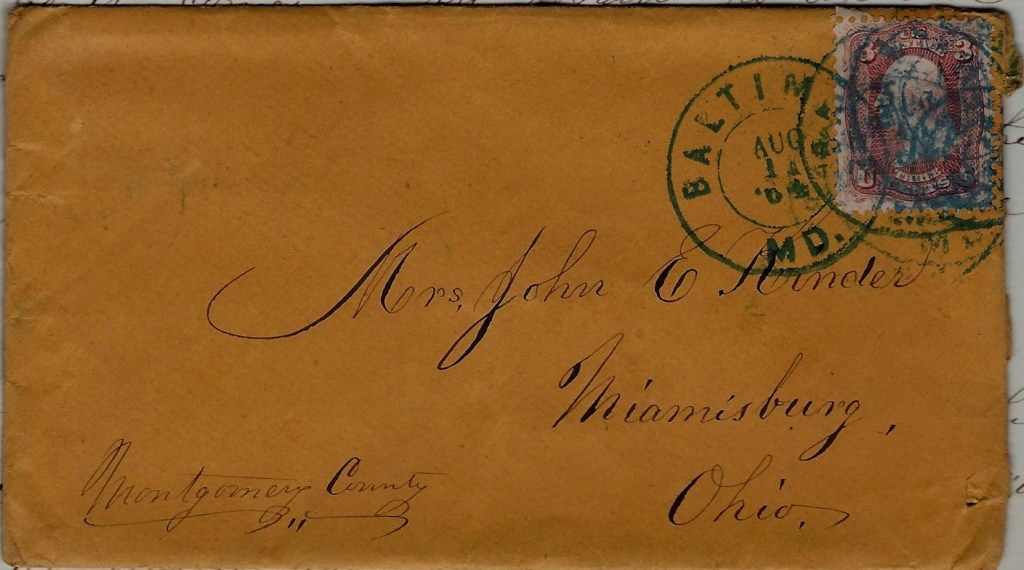 BALTIM
MD.
AUG
11
Mrs. John E. Kinder
Miamisburg,
Ohio.
Montgomery County